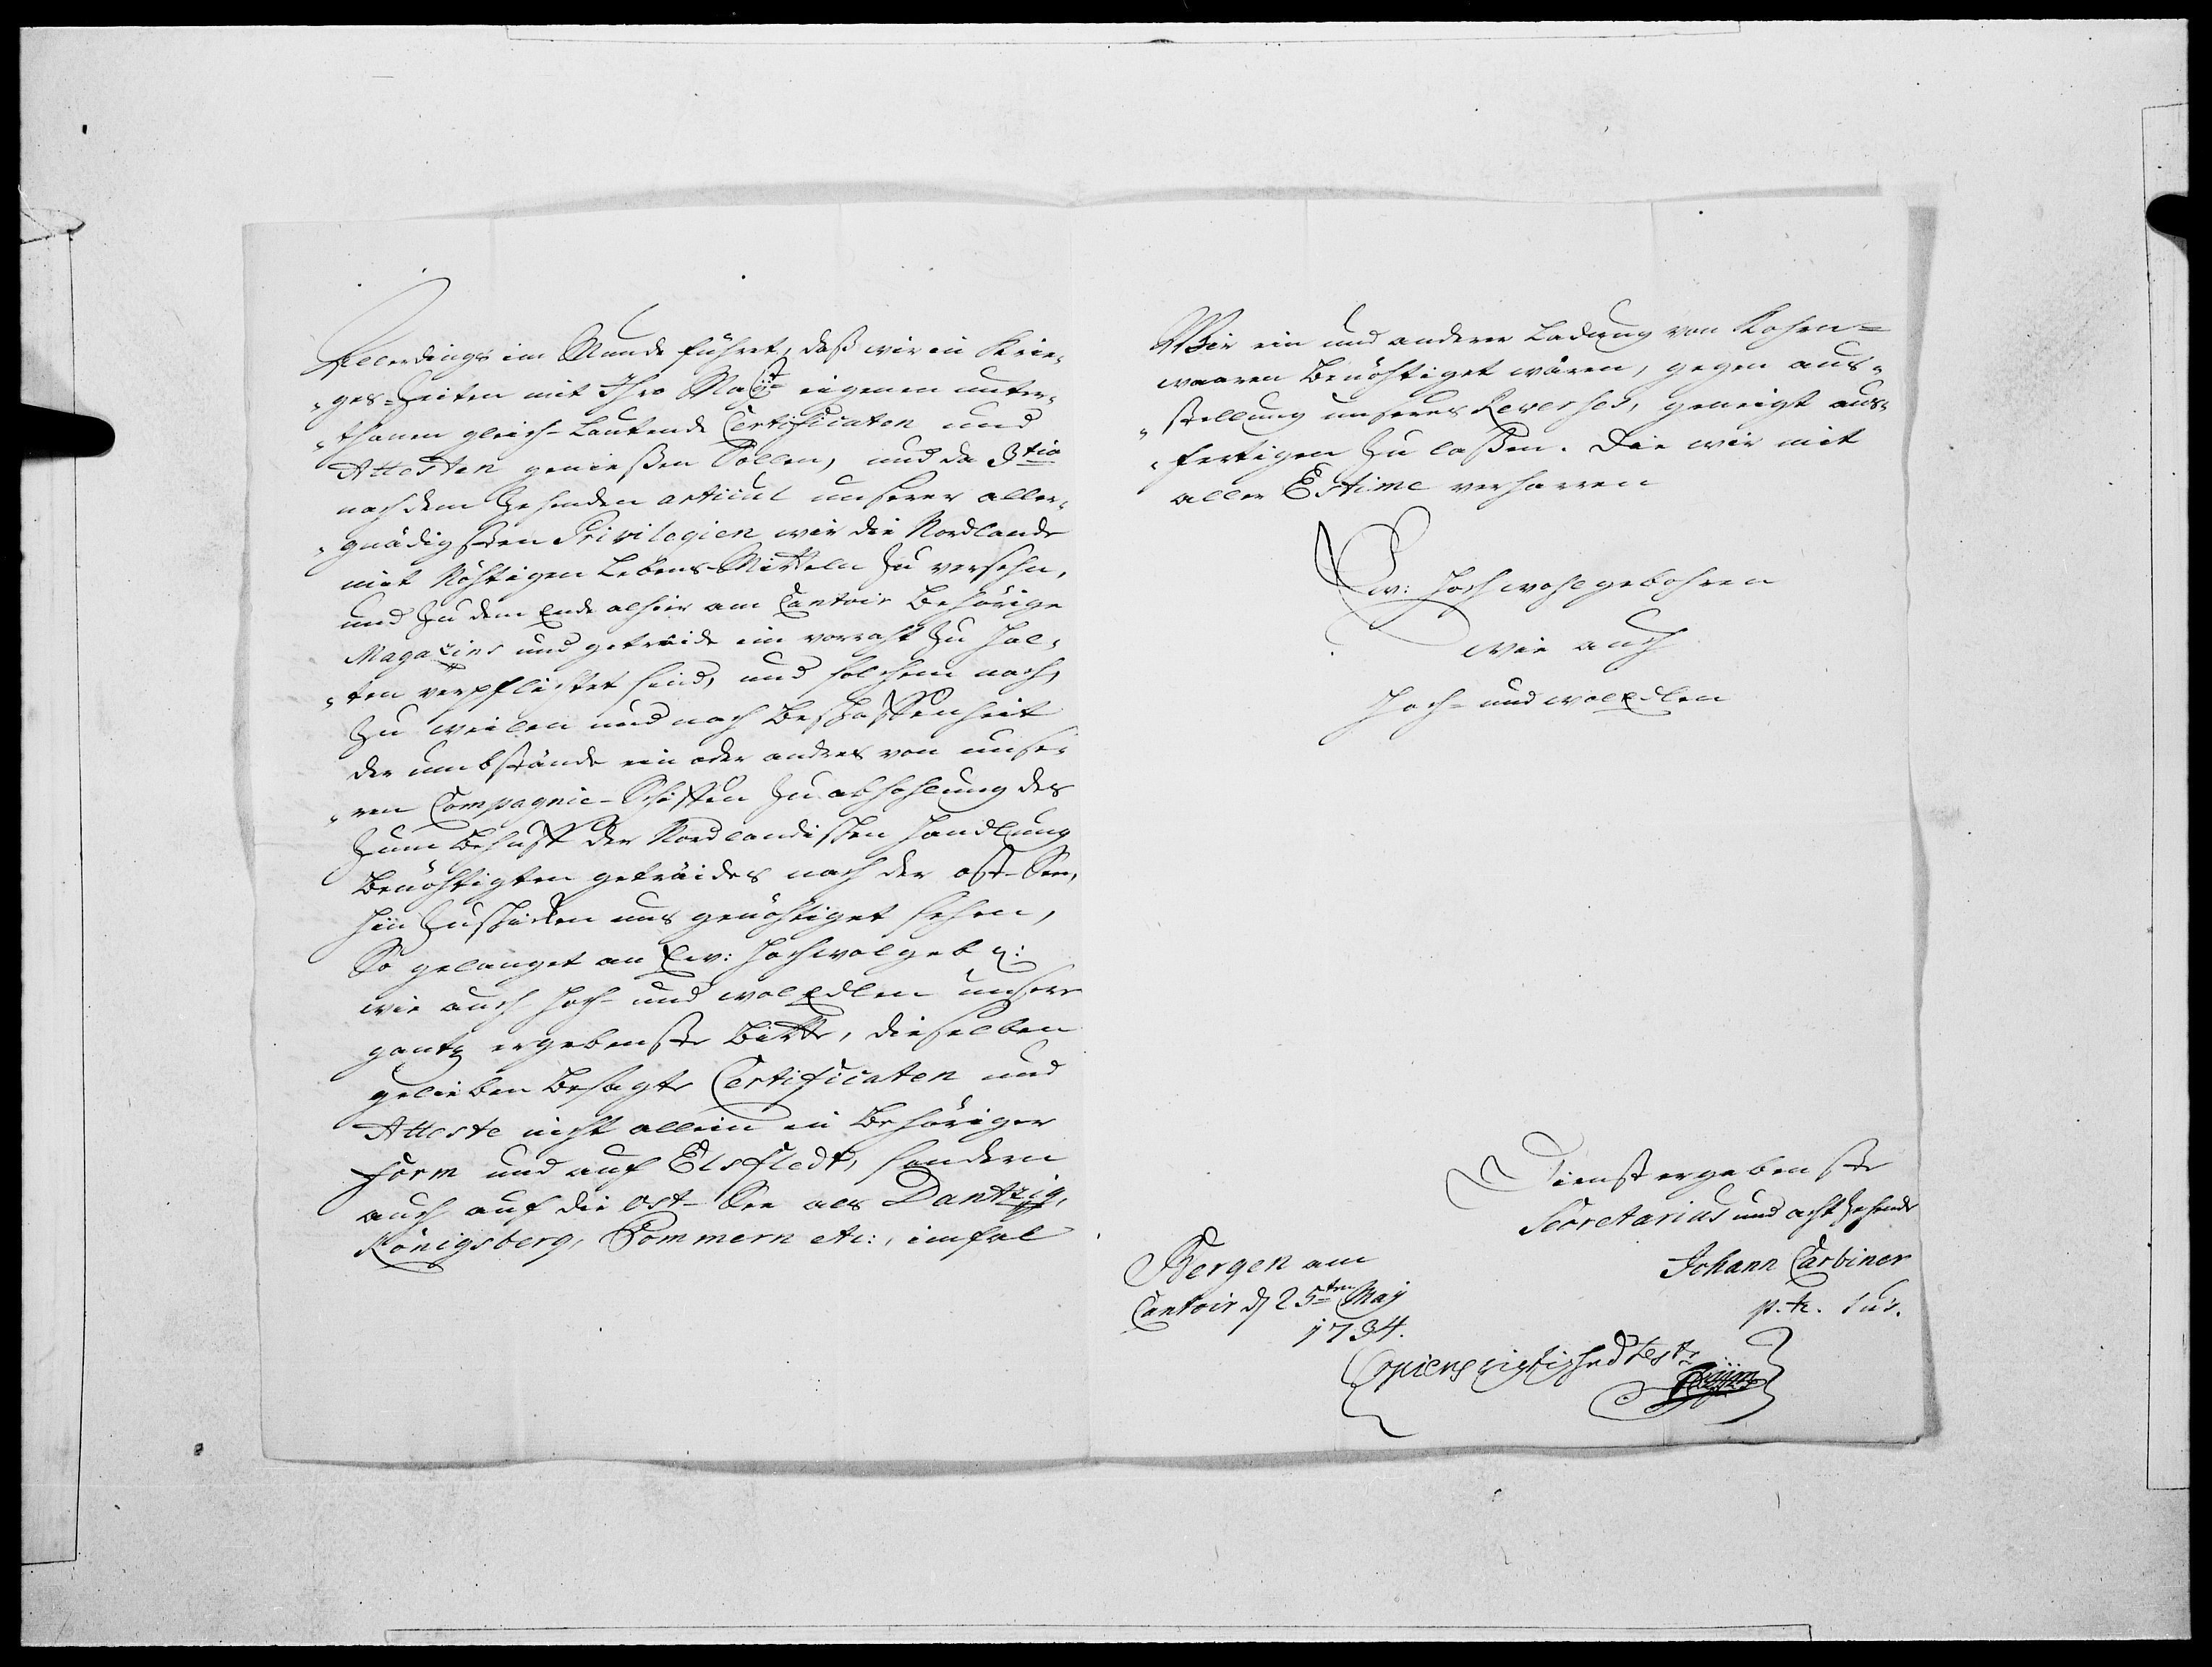 Allerdings im Munde führet, daß wir in Krie„
„ges-Zeiten mit Ihro Mayt: eigenen unter„
„thanen gleich-lautende Certificaten und
Attesten genießen Sollen, und da 3tio
nach dem Zehenden articul unserer aller„
„gnädigsten Privilegien wir die Nordlande
mit Nöhtigen Lebens-Mitteln zu versehn,
und zu dem Ende alhier am Contoir Behörige
Magazins und getreide im vorraht zu hal„
„ten verpflichtet sind, und solchem nach,
Zu weilen und nach Beschaffenheit
der umbstände ein oder andres von unse„
„ren Compagnie-Schiffen zu abhohlung des
Zum Behuff der Nordlandischen Handlung
Benöhtigten geträides nach der ost-See,
hin zuschicken uns genöhtiget sehen,
So gelanget an Ew: Hochwolgeb:
wie auch Hoch- und wolEdlen unsere
gantz ergebenste Bitte, dieselben
gelieben Besagte Certificaten und
Atteste nicht allein in Behöriger
Form und auf Elsfledt, sondern
auch auf die Ost-See als Dantzig,
Königsberg, Pommern etc:, imfal
Wir ein und anderer Ladung von Kohrn=
waaren Benöhtiget wären, gegen aus„
„stellung unseres Reverses, geneigt aus„
„fertigen zu laßen. Die wir mit
aller Estime verharren
Ew: Hoch wohlgebohren
wie auch
Hoch- und wolEdlen
Dienst ergebenste
Secretarius und achtzehende
Johann Carbiner
p. t. Sus.
Bergen am
Contoir d 25ten May
1734.
Copiens rigtighed test